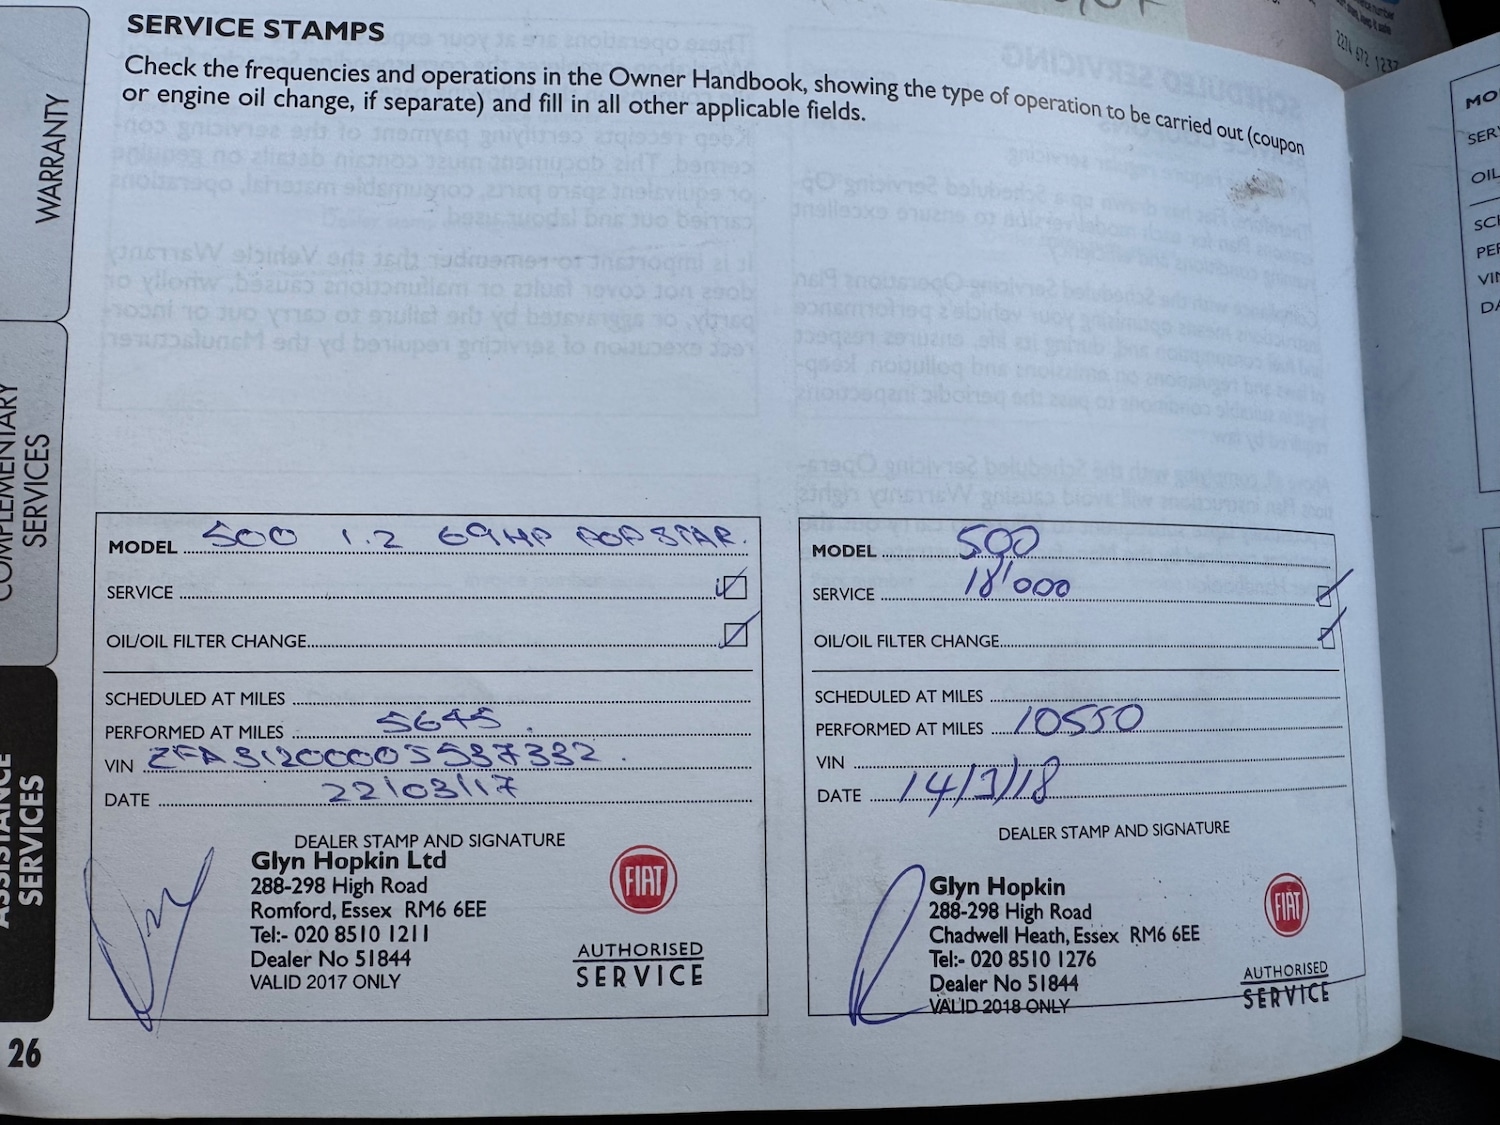 SERVICE STAMPS
Check the frequencies and operations in the Owner Handbook, showing the type of operation to be carried out (coupon
or engine oil change, if separate) and fill in all other applicable fields.
WARRANTY
COMPLEMENTARY
SERVICES
ASSISTANCE
SERVICES
26
MODEL 500 1.2 69HP POP STAR.
SERVICE
OIL/OIL FILTER CHANGE
SCHEDULED AT MILES
PERFORMED AT MILES 5645
VIN ZFA3120000J587332
DATE 22/03/17
DEALER STAMP AND SIGNATURE
Glyn Hopkin Ltd
288-298 High Road
Romford, Essex RM6 6EE
Tel:- 020 8510 1211
Dealer No 51844
VALID 2017 ONLY
FIAT
AUTHORISED
SERVICE
MODEL 500
SERVICE 18'000
OIL/OIL FILTER CHANGE
SCHEDULED AT MILES
PERFORMED AT MILES 10550
VIN
DATE 14/3/18
DEALER STAMP AND SIGNATURE
Glyn Hopkin
288-298 High Road
Chadwell Heath, Essex RM6 6EE
Tel:- 020 8510 1276
Dealer No 51844
VALID 2018 ONLY
FIAT
AUTHORISED
SERVICE
2274 672 1237